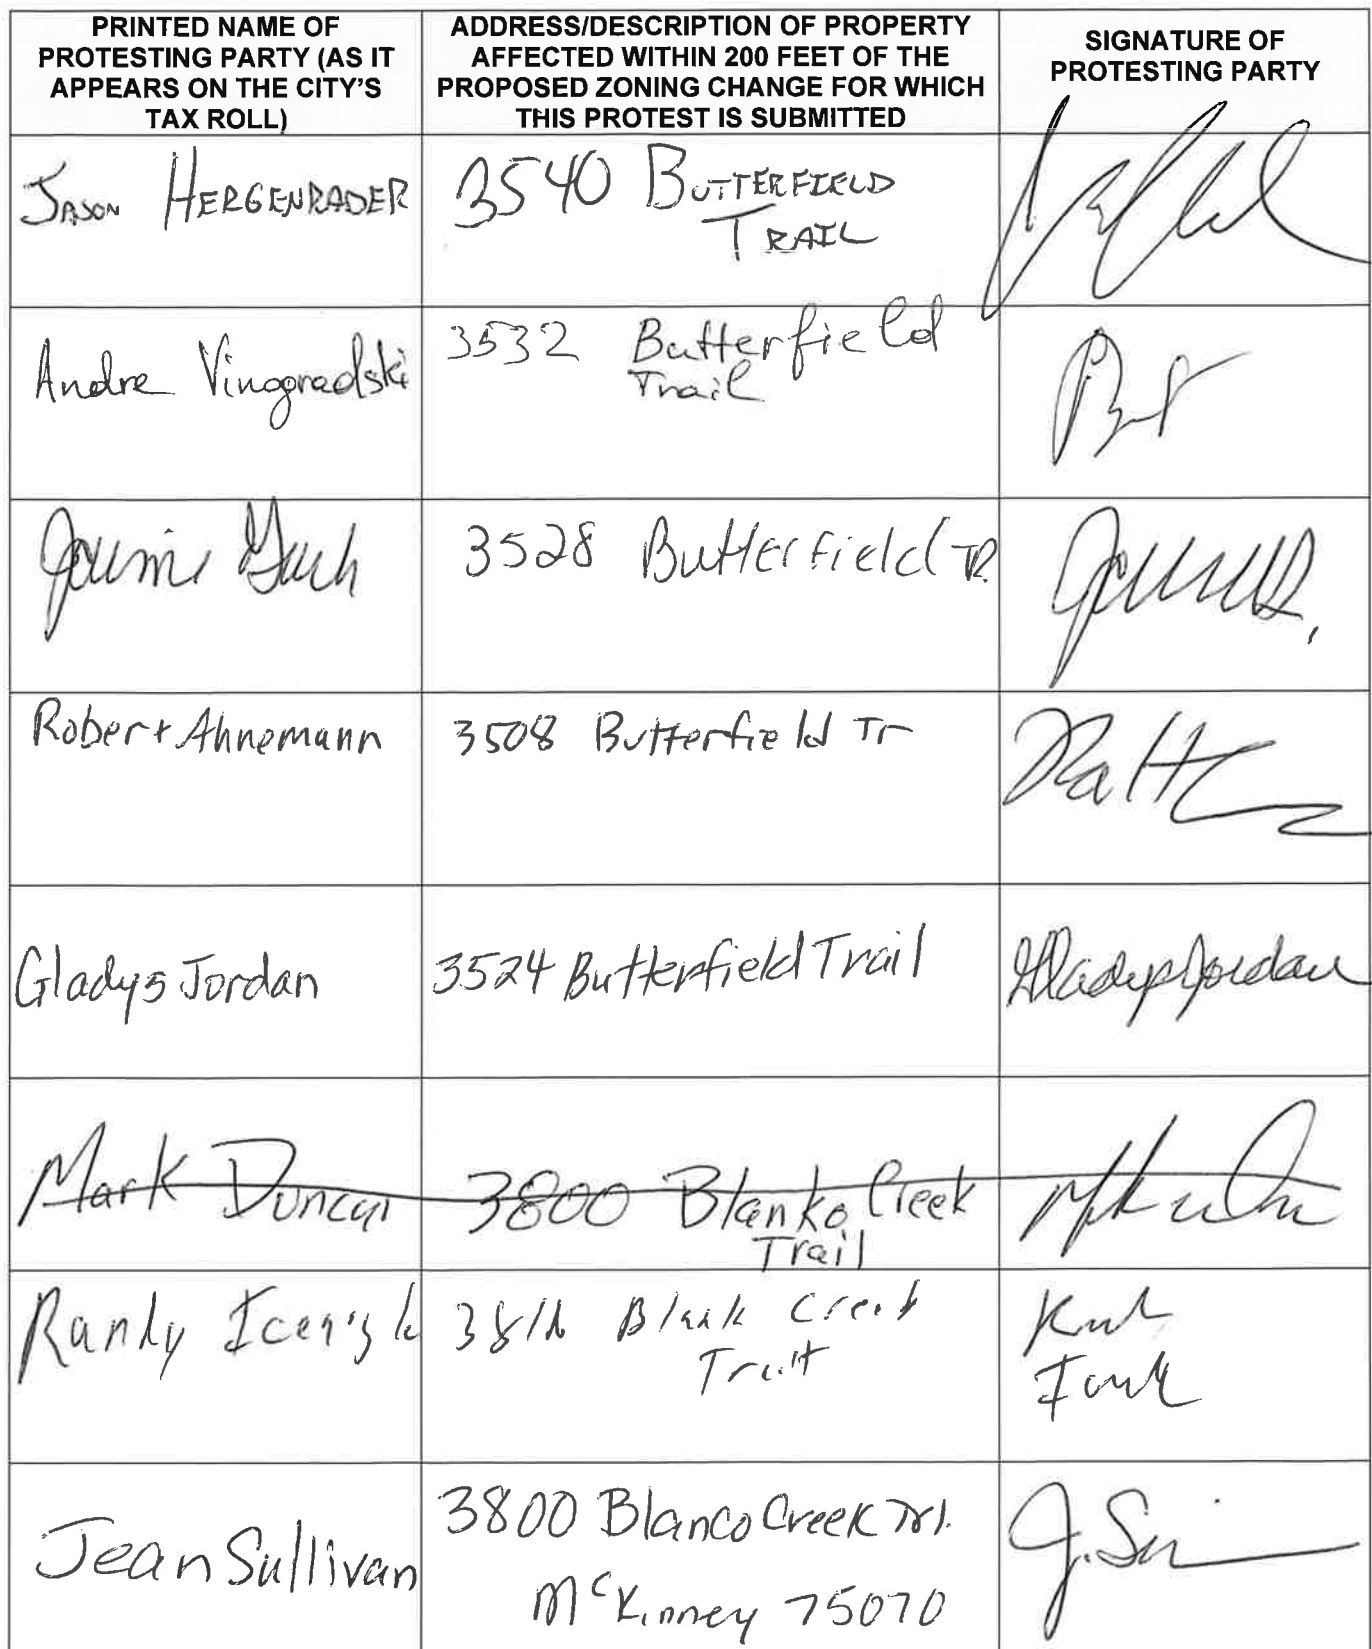 PRINTED NAME OF
PROTESTING PARTY (AS IT
APPEARS ON THE CITY'S
TAX ROLL)
ADDRESS/DESCRIPTION OF PROPERTY
AFFECTED WITHIN 200 FEET OF THE
PROPOSED ZONING CHANGE FOR WHICH
THIS PROTEST IS SUBMITTED
SIGNATURE OF
PROTESTING PARTY
JASON HERGENRADER
3540 BUTTERFIELD
TRAIL
Andre Vinogradski
3532 Butterfield
Trail
3528 Butterfield TR
Robert Ahnemann
3508 Butterfield Tr
Gladys Jordan
3524 Butterfield Trail
Gladys Jordan
Mark Duncan
3800 Blanko Creek
Trail
Randy
Creek
Jean Sullivan
3800 Blanco Creek Trl.
McKinney 75070
J. Su